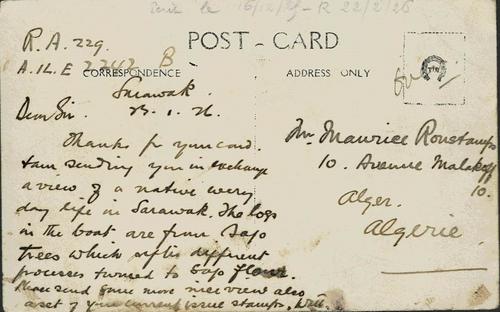 16/12/25 - R 22/2/26
R.A. 229.
A.I.L.E 2242 B
POST-CARD
CORRESPONDENCE
ADDRESS ONLY
Sarawak.
Dear Sir.
Thanks for your card.
I am sending you in exchange
a view of a native every
day life in Sarawak. The logs
in the boat are from Sago
trees which after different
processes turned to Sago flour.
Please send some more nice view also
a set of your current issue stamps.
Mr Maurice Ronstamps
10. Avenue Malakoff
10.
Alger.
Algerie